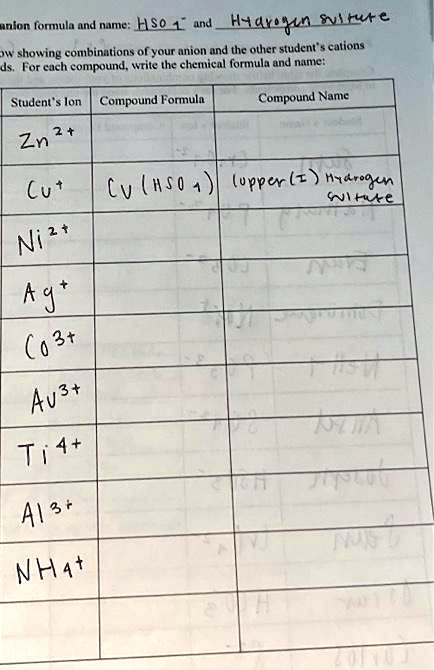 anion formula and name: HSO4- and Hydrogen sulfate
ow showing combinations of your anion and the other student's cations
ds. For each compound, write the chemical formula and name:
Student's Ion Compound Formula Compound Name
Zn2+
Cu+ Cu(HSO4) Copper(I) Hydrogen
sulfate
Ni2+
Ag+
Co3+
Au3+
Ti4+
Al3+
NH4+